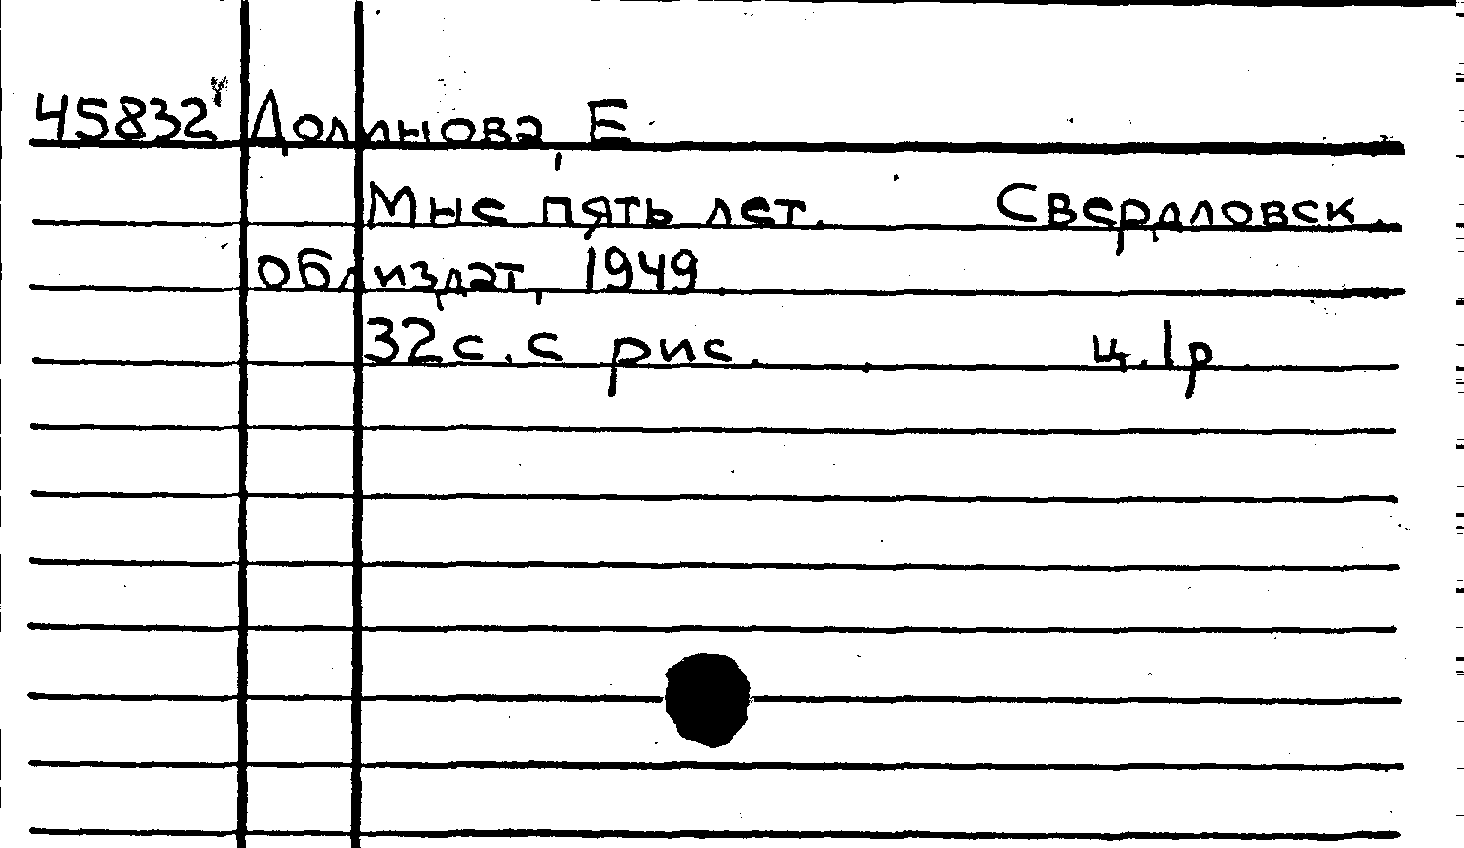 45832 Долинова, Е
Мне пять лет. Свердловск.
облиздат, 1949.
32с. с рис. ц. 1р